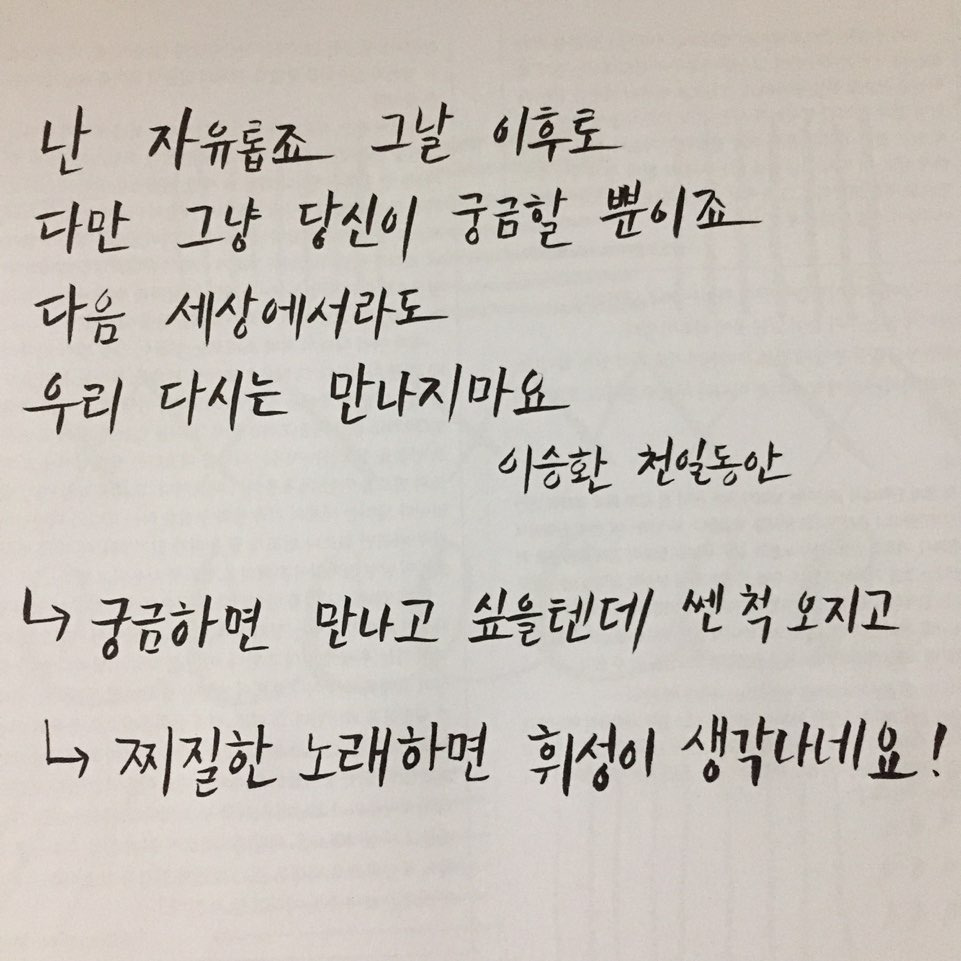 난 자유롭죠 그날 이후로
다만 그냥 당신이 궁금할 뿐이죠
다음 세상에서라도
우리 다시는 만나지마요
이승환 천일동안
↳ 궁금하면 만나고 싶을텐데 쎈척 오지고
↳ 찌질한 노래하면 휘성이 생각나네요!